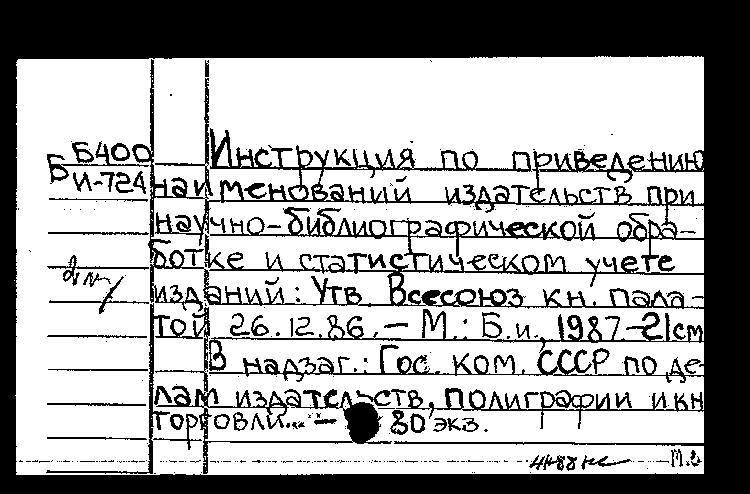 Б400 Инструкция по приведению
Б И-724 наименований издательств при
научно-библиографической обра-
ботке и статистическом учете
изданий: Утв. Всесоюз кн. пала-
той 26.12.86.- М.: Б.и., 1987.-21см
В надзаг.: Гос. ком. СССР по де-
лам издательств, полиграфии и кн
торговли... - 80 экз.